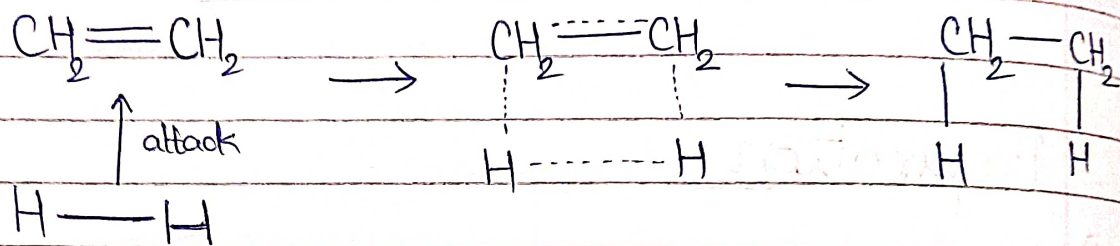 CH₂=CH₂ → CH₂=CH₂ → CH₂—CH₂
attack
H—H H-----H H H